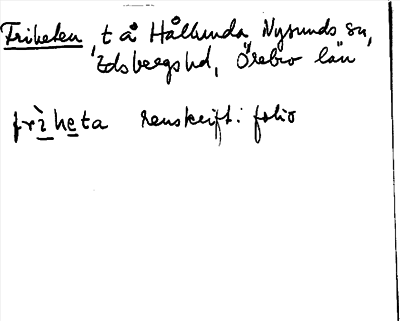 Friheten, t å Hållunda, Nysunds sn,
Edsbergs hd, Örebro län
frìheta renskrift: folio